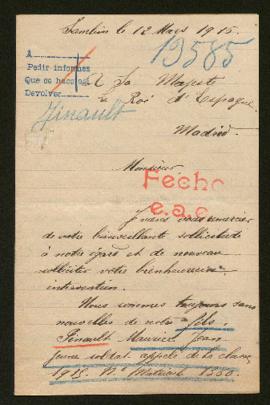 le 12 Mars 1915.
13585
A
Pedir informes
Que se hace así
Devolver
Jinault
A Sa Majesté
le Roi d'Espagne
Madrid
Monsieur
Fecho
e.a.c.
Je viens vous remercier
de votre bienveillante sollicitude
à notre égard et de nouveau
solliciter votre bienheureuse
intervention.
Nous sommes toujours sans
nouvelles de notre fils
Jinault Maurice Jean
jeune soldat appelé de la classe
1915. No Matricule